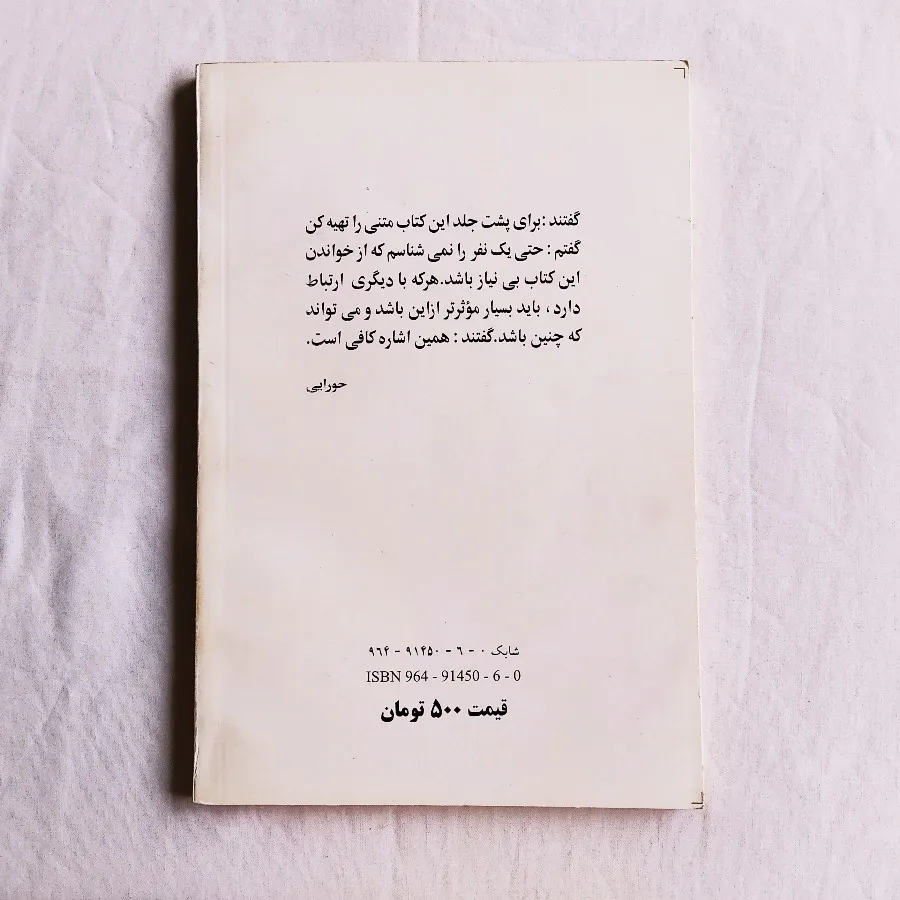 گفتند :برای پشت جلد این کتاب متنی را تهیه کن
گفتم : حتی یک نفر را نمی شناسم که از خواندن
این کتاب بی نیاز باشد.هرکه با دیگری ارتباط
دارد ، باید بسیار مؤثرتر ازاین باشد و می تواند
که چنین باشد.گفتند : همین اشاره کافی است.
حورایی
شابک ۰ - ۶ - ۹۱۴۵۰ - ۹۶۴
ISBN 964 - 91450 - 6 - 0
قیمت ۵۰۰ تومان